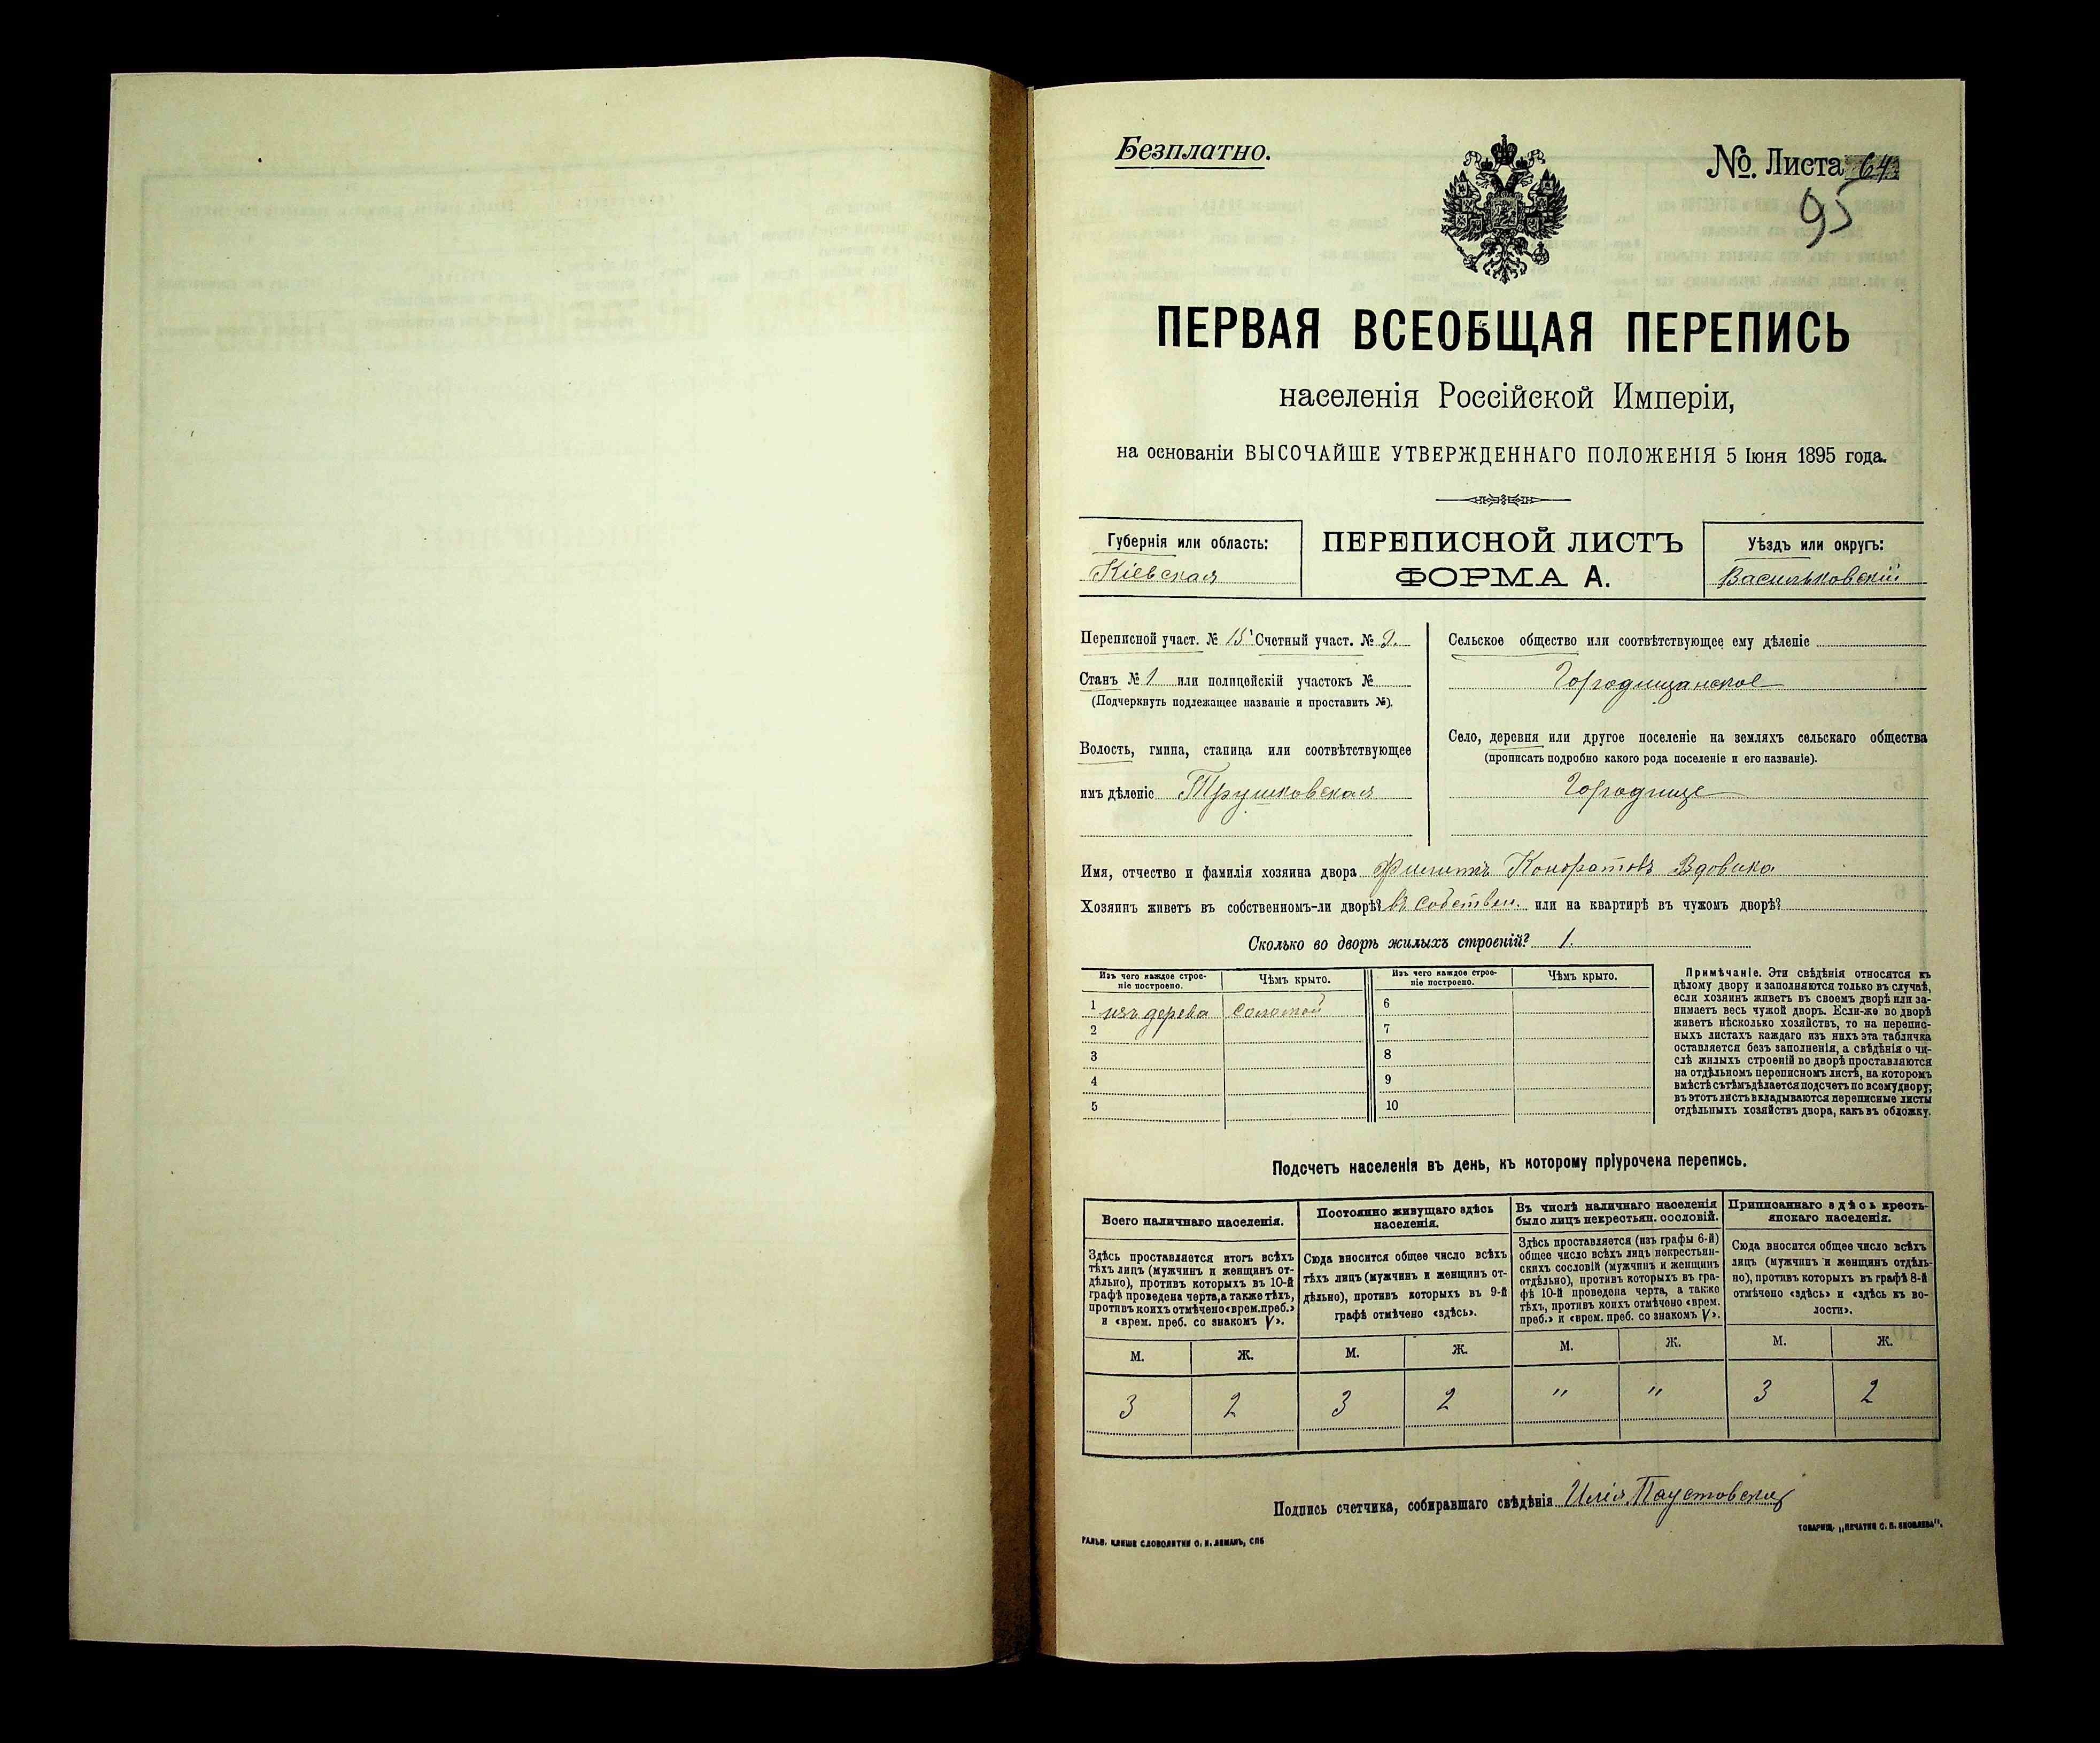 Безплатно.
№. Листа 64
95
ПЕРВАЯ ВСЕОБЩАЯ ПЕРЕПИСЬ
населенія Россійской Имперіи,
на основаніи ВЫСОЧАЙШЕ УТВЕРЖДЕННАГО ПОЛОЖЕНІЯ 5 Іюня 1895 года.
Губернія или область:
Кіевская
ПЕРЕПИСНОЙ ЛИСТЪ
ФОРМА А.
Уѣздъ или округъ:
Васильковскій
Переписной участ. № 15 Счетный участ. № 2.
Станъ № 1 или полицейскій участокъ №
(Подчеркнуть подлежащее названіе и проставить №).
Волость, гмина, станица или соотвѣтствующее
имъ дѣленіе Трушковская
Сельское общество или соотвѣтствующее ему дѣленіе
Городищанское
Село, деревня или другое поселеніе на земляхъ сельскаго общества
(прописать подробно какого рода поселеніе и его названіе).
Городище
Имя, отчество и фамилія хозяина двора Филиппъ Кондратовъ Вдовика
Хозяинъ живетъ въ собственномъ-ли дворѣ? въ собствен. или на квартирѣ въ чужомъ дворѣ?
Сколько во дворѣ жилыхъ строеній? 1.
Изъ чего каждое строе-
ніе построено.
Чѣмъ крыто.
Изъ чего каждое строе-
ніе построено.
Чѣмъ крыто.
1 изъ дерева соломой
2
3
4
5
6
7
8
9
10
Примѣчаніе. Эти свѣдѣнія относятся къ
цѣлому двору и заполняются только въ случаѣ,
если хозяинъ живетъ въ своемъ дворѣ или за-
нимаетъ весь чужой дворъ. Если-же во дворѣ
живетъ нѣсколько хозяйствъ, то на перепис-
ныхъ листахъ каждаго изъ нихъ эта табличка
оставляется безъ заполненія, а свѣдѣнія о чи-
слѣ жилыхъ строеній во дворѣ проставляются
на отдѣльномъ переписномъ листѣ, на которомъ
вмѣстѣ съ тѣмъ дѣлается подсчетъ по всему двору;
въ этотъ листъ вкладываются переписные листы
отдѣльныхъ хозяйствъ двора, какъ въ обложку.
Подсчетъ населенія въ день, къ которому пріурочена перепись.
Всего наличнаго населенія.
Здѣсь проставляется итогъ всѣхъ
тѣхъ лицъ (мужчинъ и женщинъ от-
дѣльно), противъ которыхъ въ 10-й
графѣ проведена черта, а также тѣхъ,
противъ коихъ отмѣчено «врем. преб.»
и «врем. преб. со знакомъ V».
Постоянно живущаго здѣсь
населенія.
Сюда вносится общее число всѣхъ
тѣхъ лицъ (мужчинъ и женщинъ от-
дѣльно), противъ которыхъ въ 9-й
графѣ отмѣчено «здѣсь».
Въ числѣ наличнаго населенія
было лицъ некрестьян. сословій.
Здѣсь проставляется (изъ графы 6-й)
общее число всѣхъ лицъ некрестьян-
скихъ сословій (мужчинъ и женщинъ
отдѣльно), противъ которыхъ въ гра-
фѣ 10-й проведена черта, а также
тѣхъ, противъ коихъ отмѣчено «врем.
преб.» и «врем. преб. со знакомъ V».
Приписаннаго здѣсь кресть-
янскаго населенія.
Сюда вносится общее число всѣхъ
лицъ (мужчинъ и женщинъ отдѣль-
но), противъ которыхъ въ графѣ 8-й
отмѣчено «здѣсь» и «здѣсь въ во-
лости».
М. Ж. М. Ж. М. Ж. М. Ж.
3 2 3 2 " " 3 2
Подпись счетчика, собиравшаго свѣдѣнія Илія Паустовскій
ГАЛЬВ. КЛИШЕ СЛОВОЛИТНИ О. И. ЛЕМАНЪ, СПБ
ТОВАРИЩ. „ПЕЧАТНЯ С. П. ЯКОВЛЕВА“.